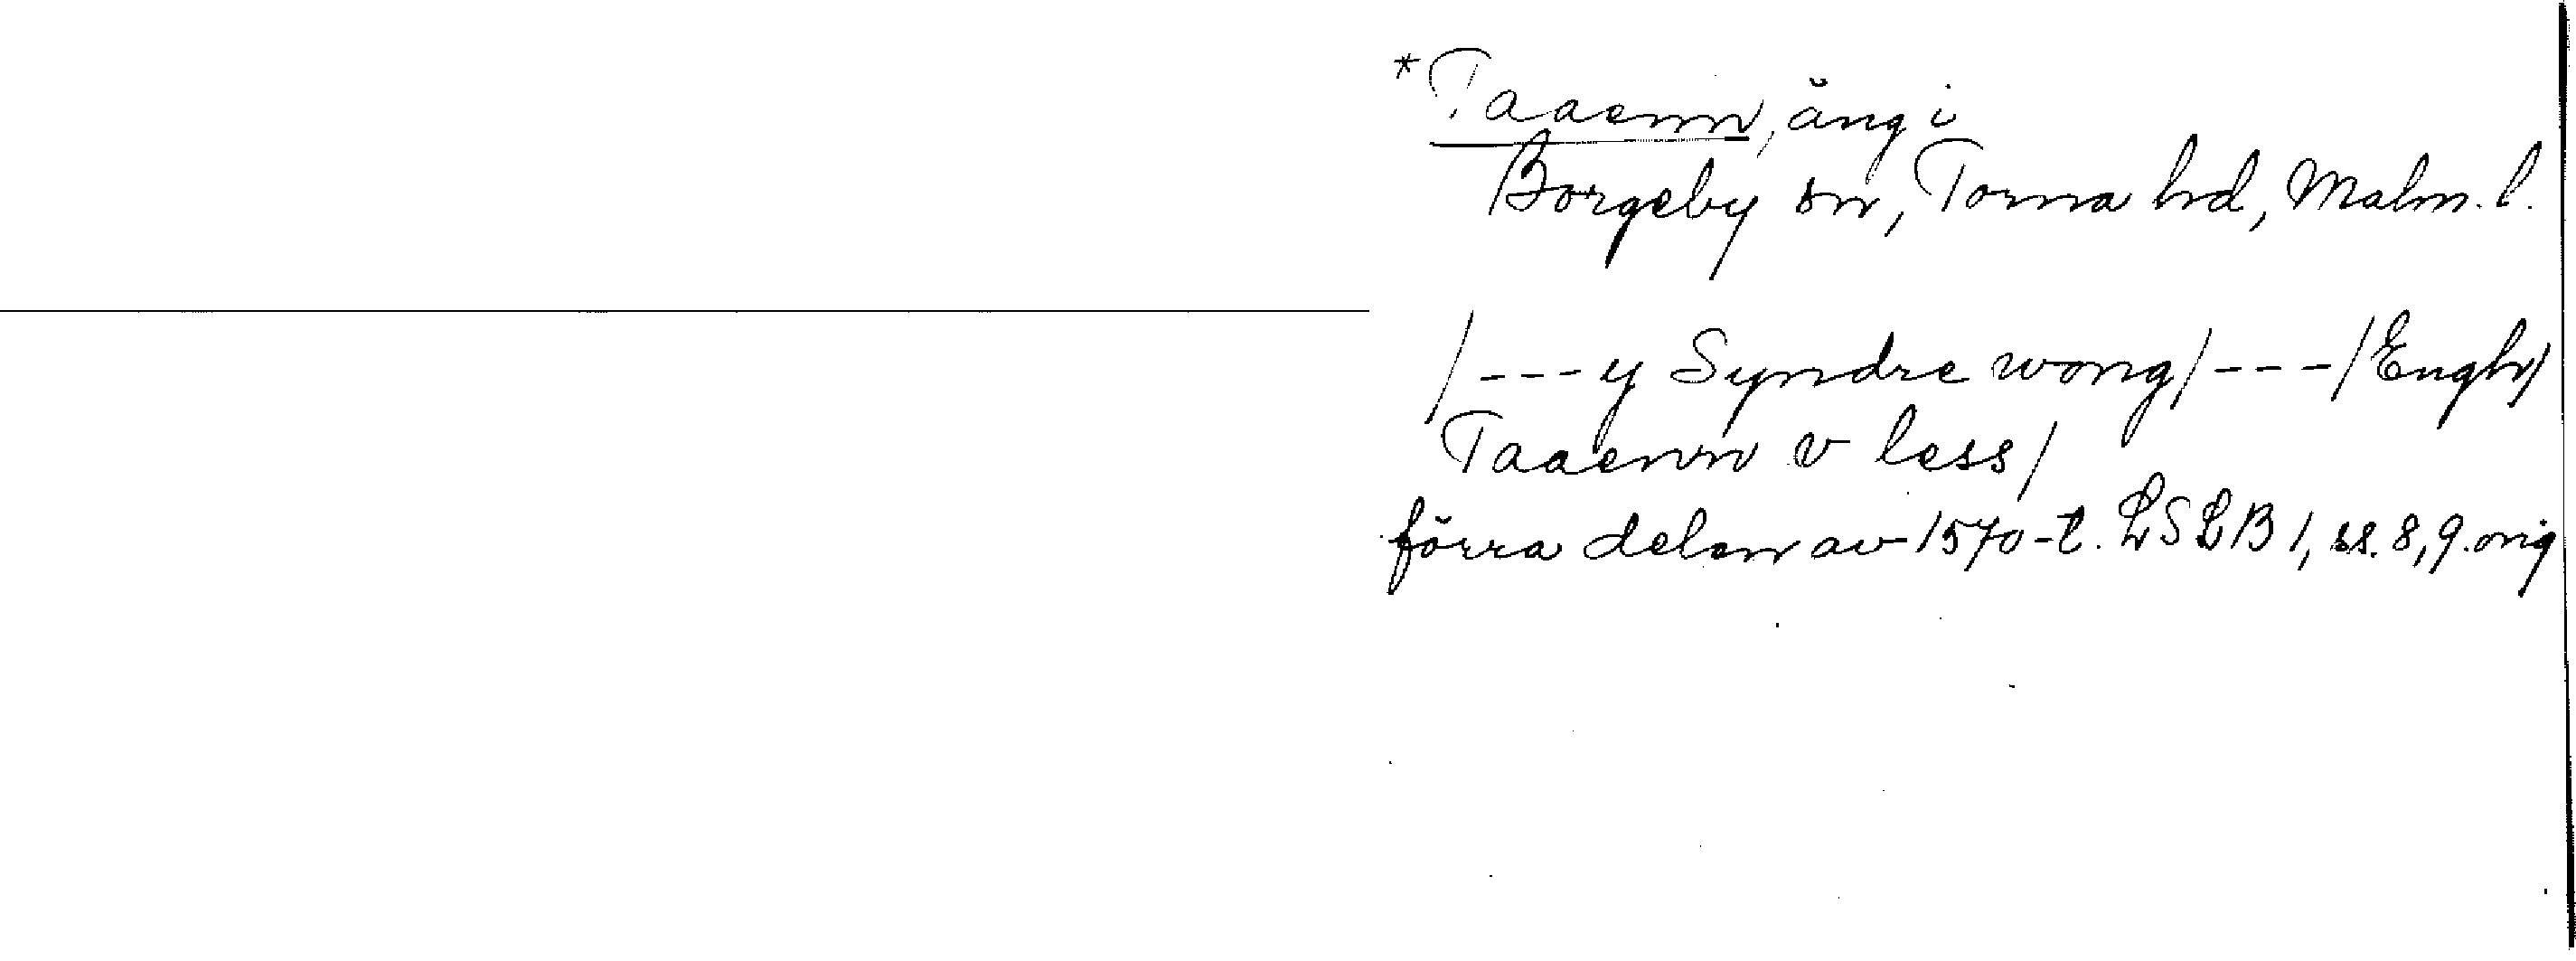 *Taaenn, äng i
Borgeby sn, Torna hd, Malm. l.
/---y Syndre wong/---/Engh/
Taaenn v less/
förra delen av 1570-t. LSLB 1, ss. 8, 9. orig